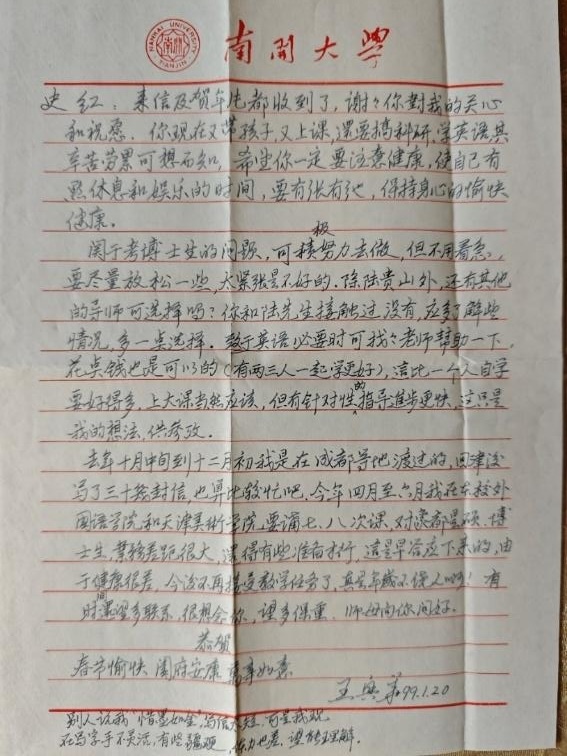 NANKAI UNIVERSITY
TIANJIN
南開大學
史红：来信及贺年片都收到了，谢谢你对我的关心
和祝愿。你现在又带孩子，又上课，还要搞科研，学英语，其
辛苦劳累可想而知，希望你一定要注意健康，使自己有
点休息和娱乐的时间，要有张有弛，保持身心的愉快
健康。
关于考博士生的问题，可积极努力去做，但不用着急，
要尽量放松一些，太紧张是不好的。除陆贵山外，还有其他
的导师可选择吗？你和陆先生接触过没有，应多了解些
情况，多一点选择。至于英语必要时可找老师帮助一下，
花点钱也是可以的（有两三人一起学更好），这比一个人自学
要好得多，上大课当然应该，但有针对性的指导进步更快，这只是
我的想法，供参考。
去年十月中旬到十二月初我是在成都等地渡过的，回津后
写了三十几封信，也算比较忙吧，今年四月至六月我在本校外
国语学院和天津美术学院要讲七、八次课，对象都是硕、博
士生，业务差距很大，深得有些准备才行，这是早答应下来的，由
于健康很差，今后不再接受教学任务了，真是年岁不饶人啊！有
时间望多联系，很想念你，望多保重。师母向你问好。
恭贺
春节愉快 阖府安康 万事如意
王 99.1.20
别人说我"惜墨如金"，写信太短，可是我现
在写字手不灵活，有些 ，望能理解。